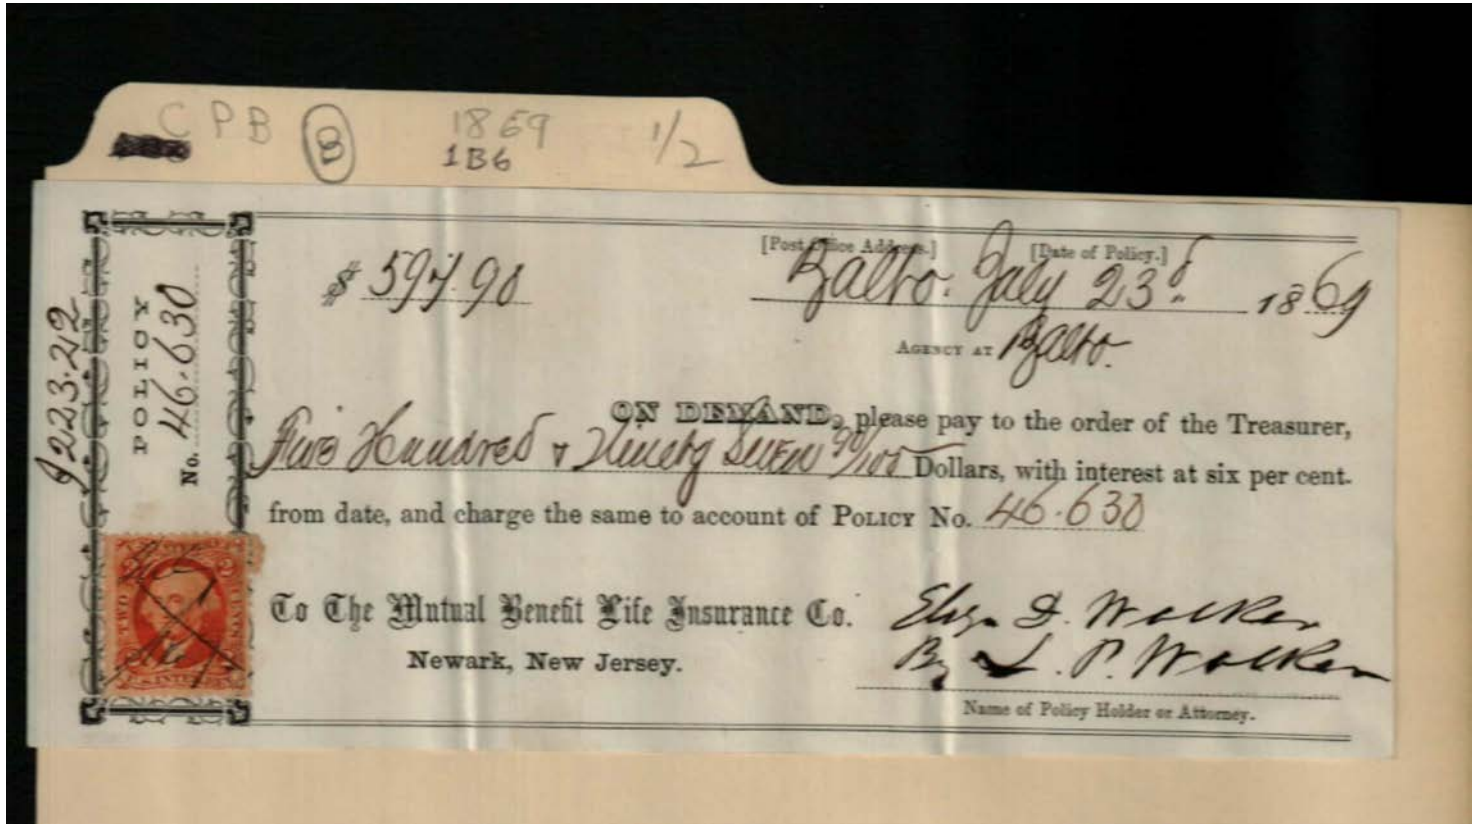 C P B B 1869 1/2
1B6
[Post Office Address.] [Date of Policy.]
$ 597.90 Balto. July 23d 1869
AGENCY AT Balto.
ON DEMAND, please pay to the order of the Treasurer,
Five Hundred & Ninety Seven 90/100 Dollars, with interest at six per cent.
from date, and charge the same to account of POLICY No. 46.630
To The Mutual Benefit Life Insurance Co.
Newark, New Jersey.
Eliza D. Walker
By L. P. Walker
Name of Policy Holder or Attorney.
POLICY
No. 46.630
223.22
TWO CENTS